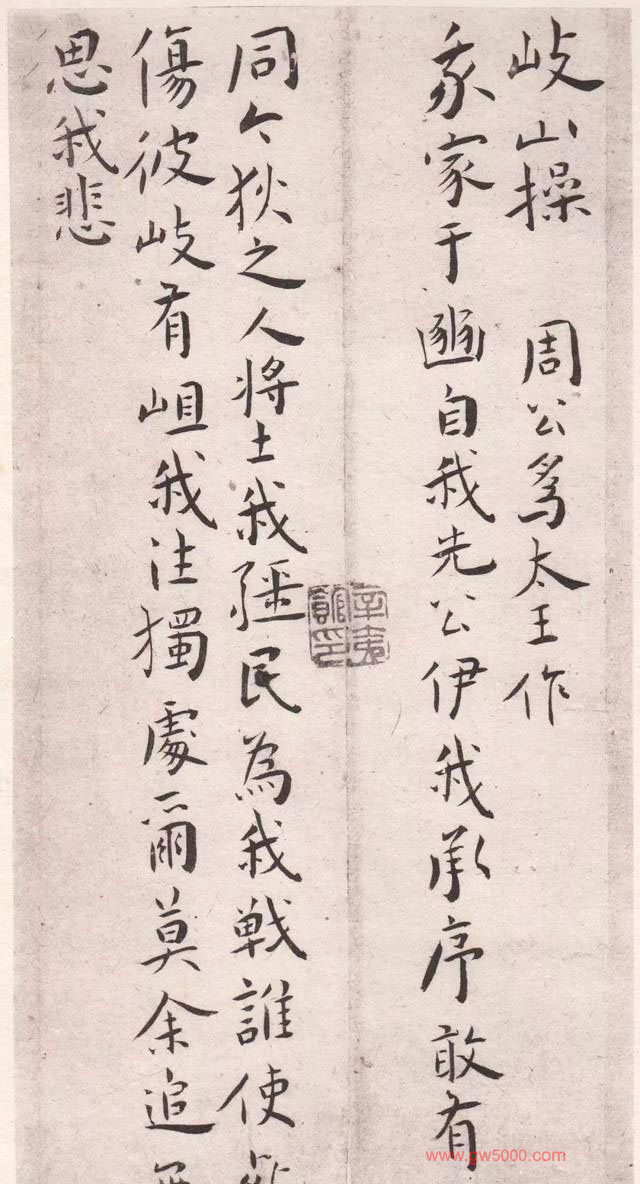 岐山操 周公爲太王作
我家于豳自我先公伊我承序敢有
同今狄之人将土我疆民為我戦誰使
傷彼岐有岨我往獨處爾莫余追
思我悲
辛夷館印
www.gw5000.com